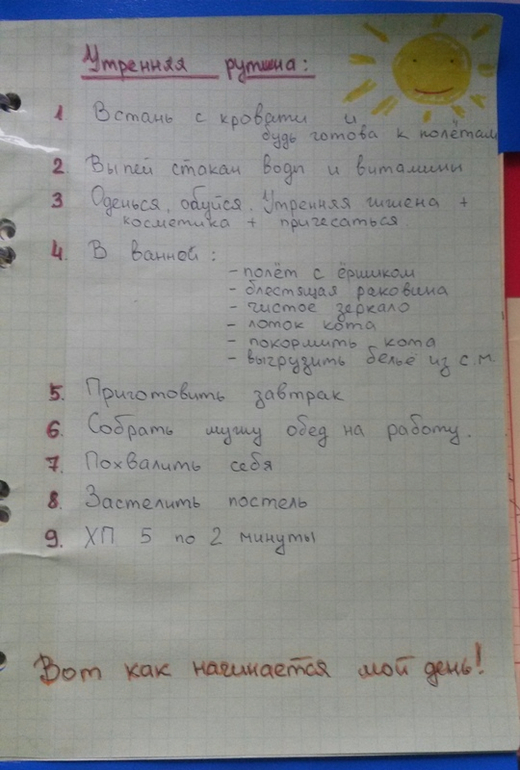 Утренняя рутина:
1. Встань с кровати и
будь готова к полётам
2. Выпей стакан воды и витамины
3 Оденься, обуйся. Утренняя гигиена +
косметика + причесаться.
4. В ванной:
- полёт с ёршиком
- блестящая раковина
- чистое зеркало
- лоток кота
- покормить кота
- выгрузить бельё из с.м.
5. Приготовить завтрак
6. Собрать мужу обед на работу.
7. Похвалить себя
8. Застелить постель
9. ХП 5 по 2 минуты
Вот как начинается мой день!